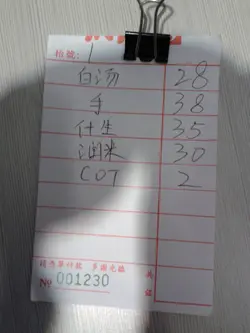 枱號: 1
白汤 28
手 38
什生 35
润米 30
COT 2
No 001230